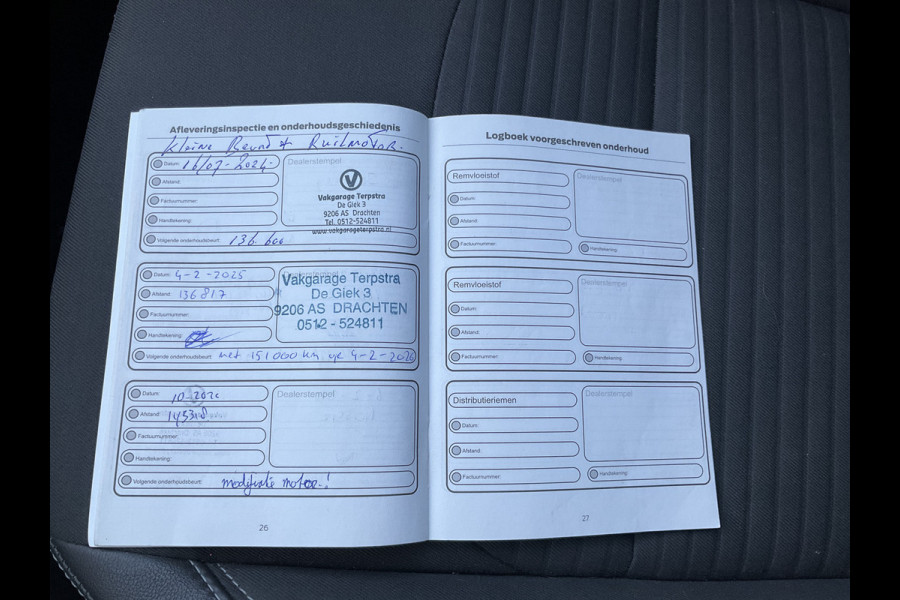 Afleveringsinspectie en onderhoudsgeschiedenis
Kleine Beurt + Ruilmotor.
Datum: 16/07-2024.
Afstand:
Factuurnummer:
Handtekening:
Volgende onderhoudsbeurt: 136.600
Dealerstempel
Vakgarage Terpstra
De Giek 3
9206 AS Drachten
Tel. 0512-524811
www.vakgarageterpstra.nl
Datum: 4-2-2025
Afstand: 136817
Factuurnummer:
Handtekening:
Volgende onderhoudsbeurt: met 151000 km of 4-2-2026
Vakgarage Terpstra
De Giek 3
9206 AS DRACHTEN
0512 - 524811
Datum: 10
Afstand:
Factuurnummer:
Handtekening:
Volgende onderhoudsbeurt: modificatie motor!
Dealerstempel
26
Logboek voorgeschreven onderhoud
Remvloeistof
Datum:
Afstand:
Factuurnummer:
Dealerstempel
Handtekening:
Remvloeistof
Datum:
Afstand:
Factuurnummer:
Dealerstempel
Handtekening:
Distributieriemen
Datum:
Afstand:
Factuurnummer:
Dealerstempel
Handtekening:
27